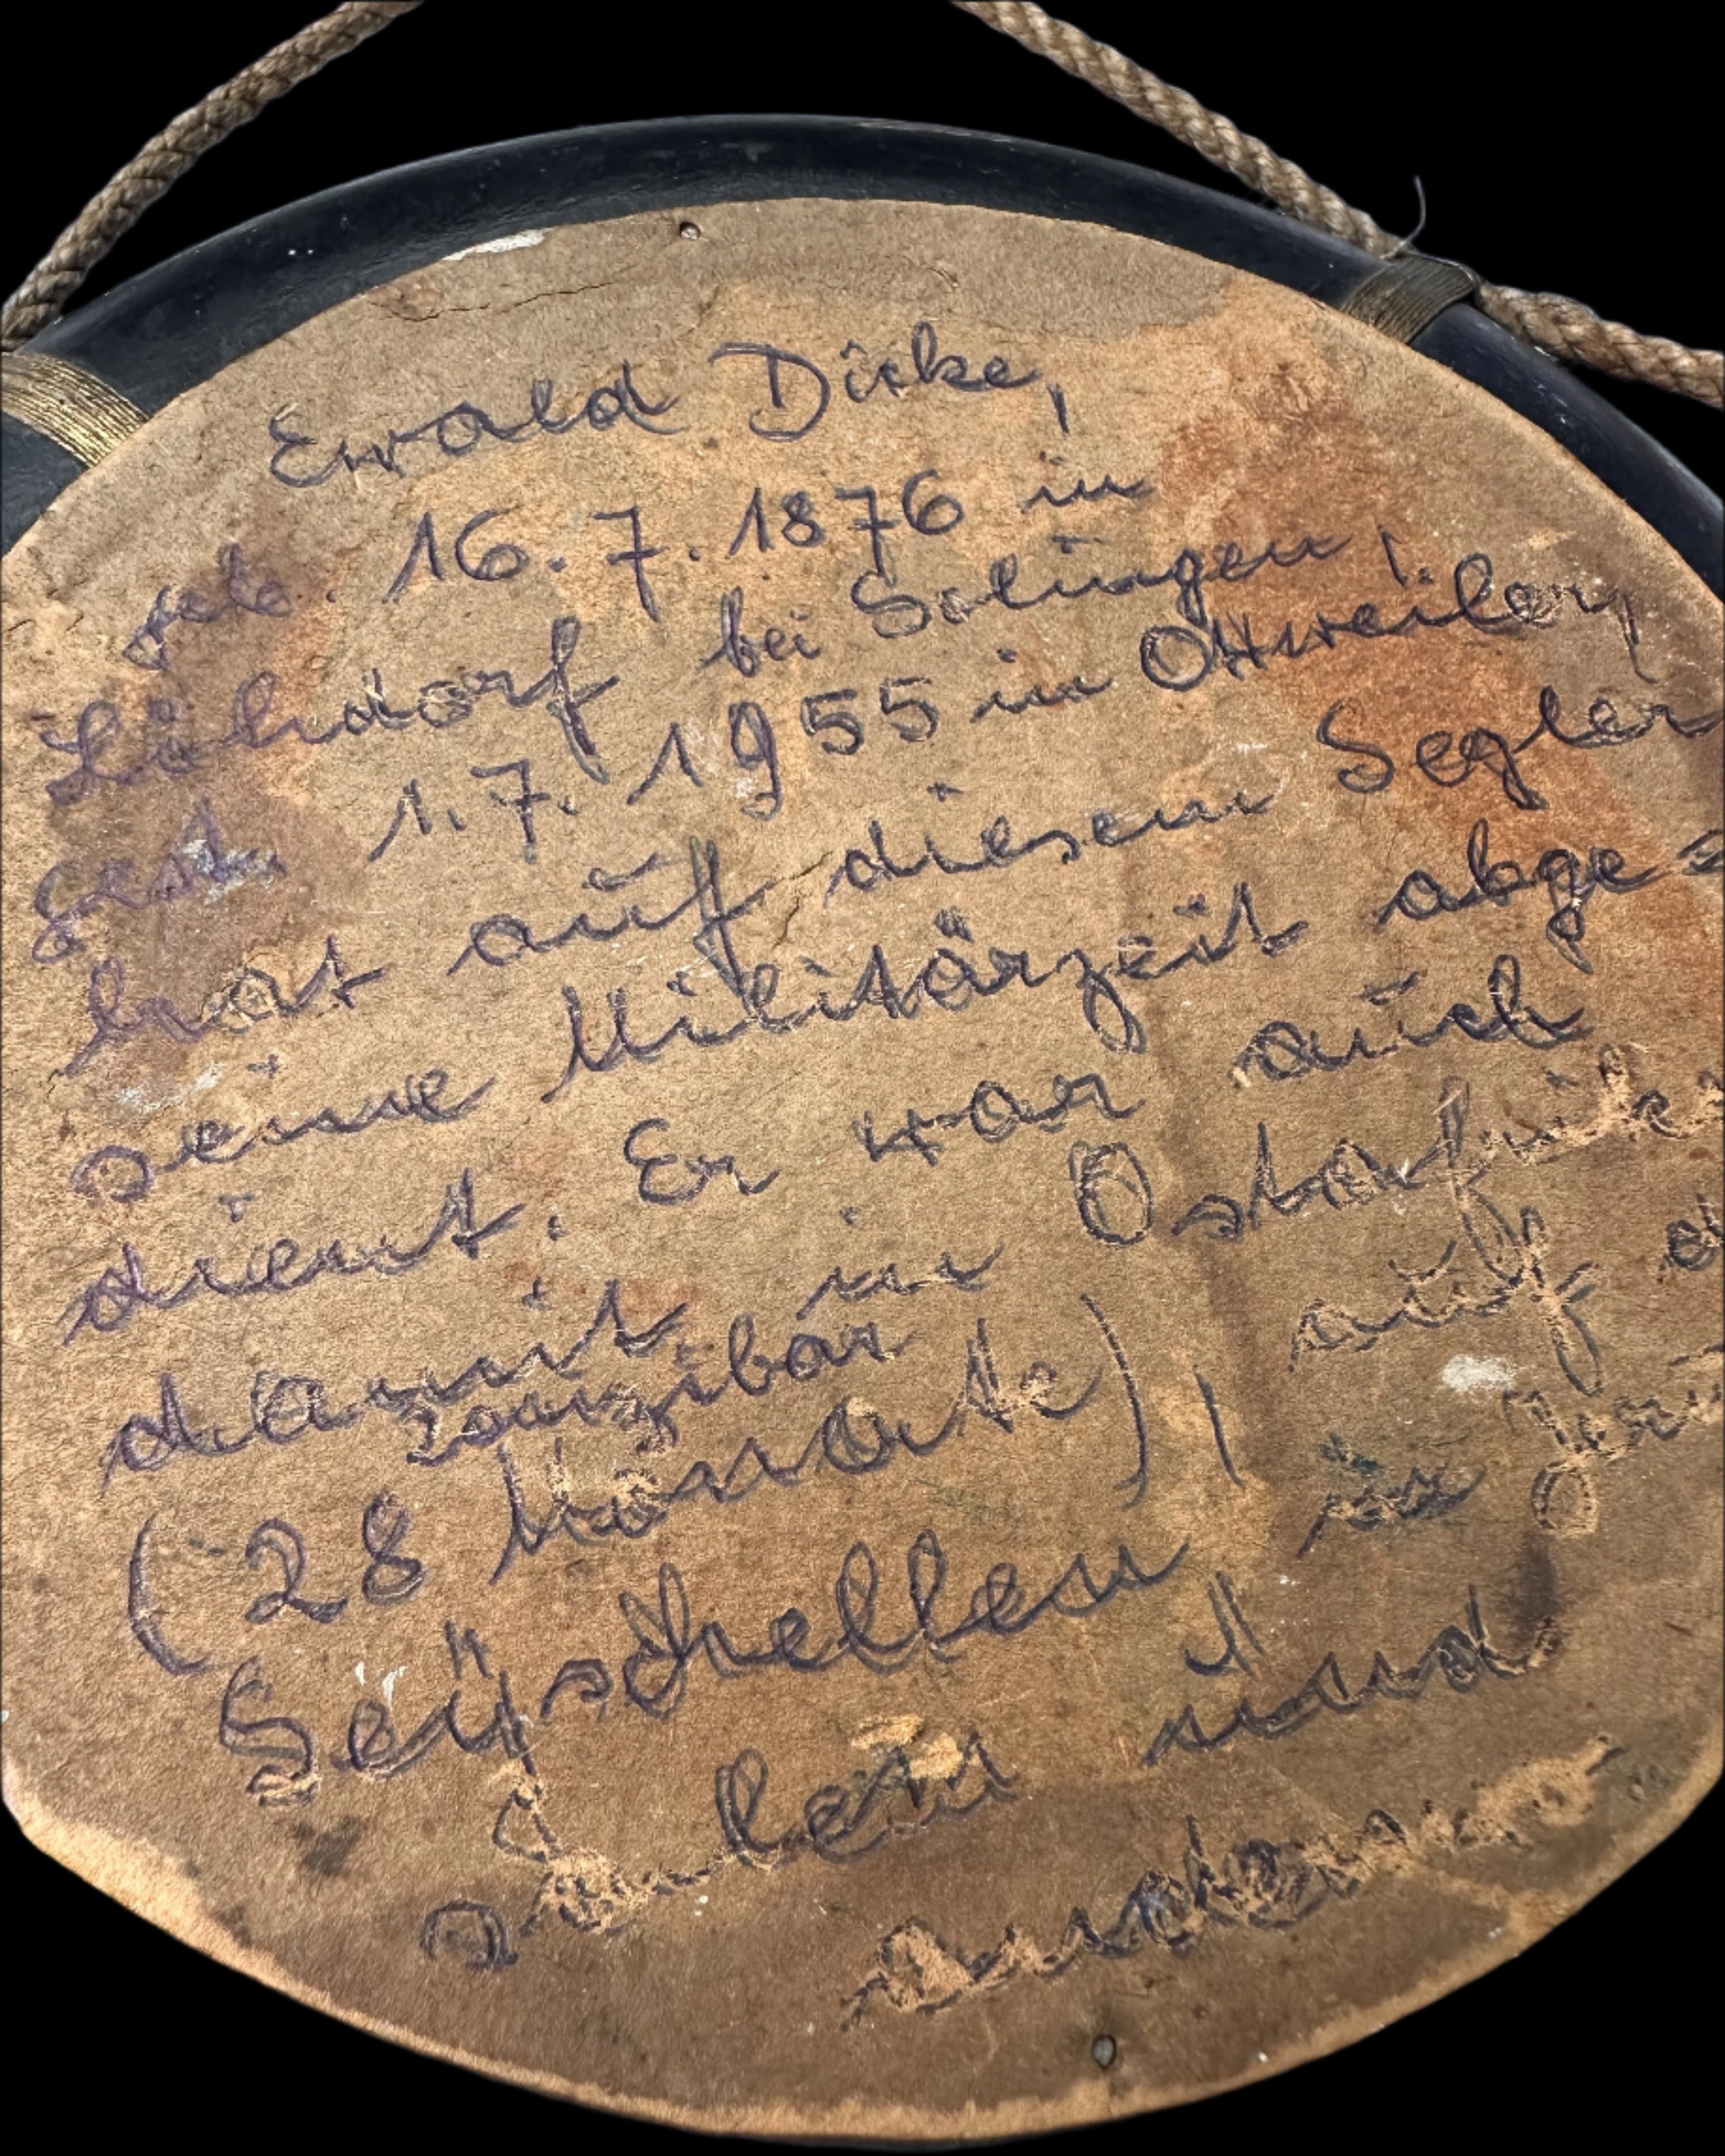 Ewald Dirke,
geb. 16.7.1876 in
Löhdorf bei Solingen,
gest. 1.7.1955 in Ottweiler,
hat auf diesem Segler
seine Militärzeit abge=
dient. Er war auch
damit in Ostafrika
Sanzibar
(28 Monate), auf d
Seÿschellen, in
und